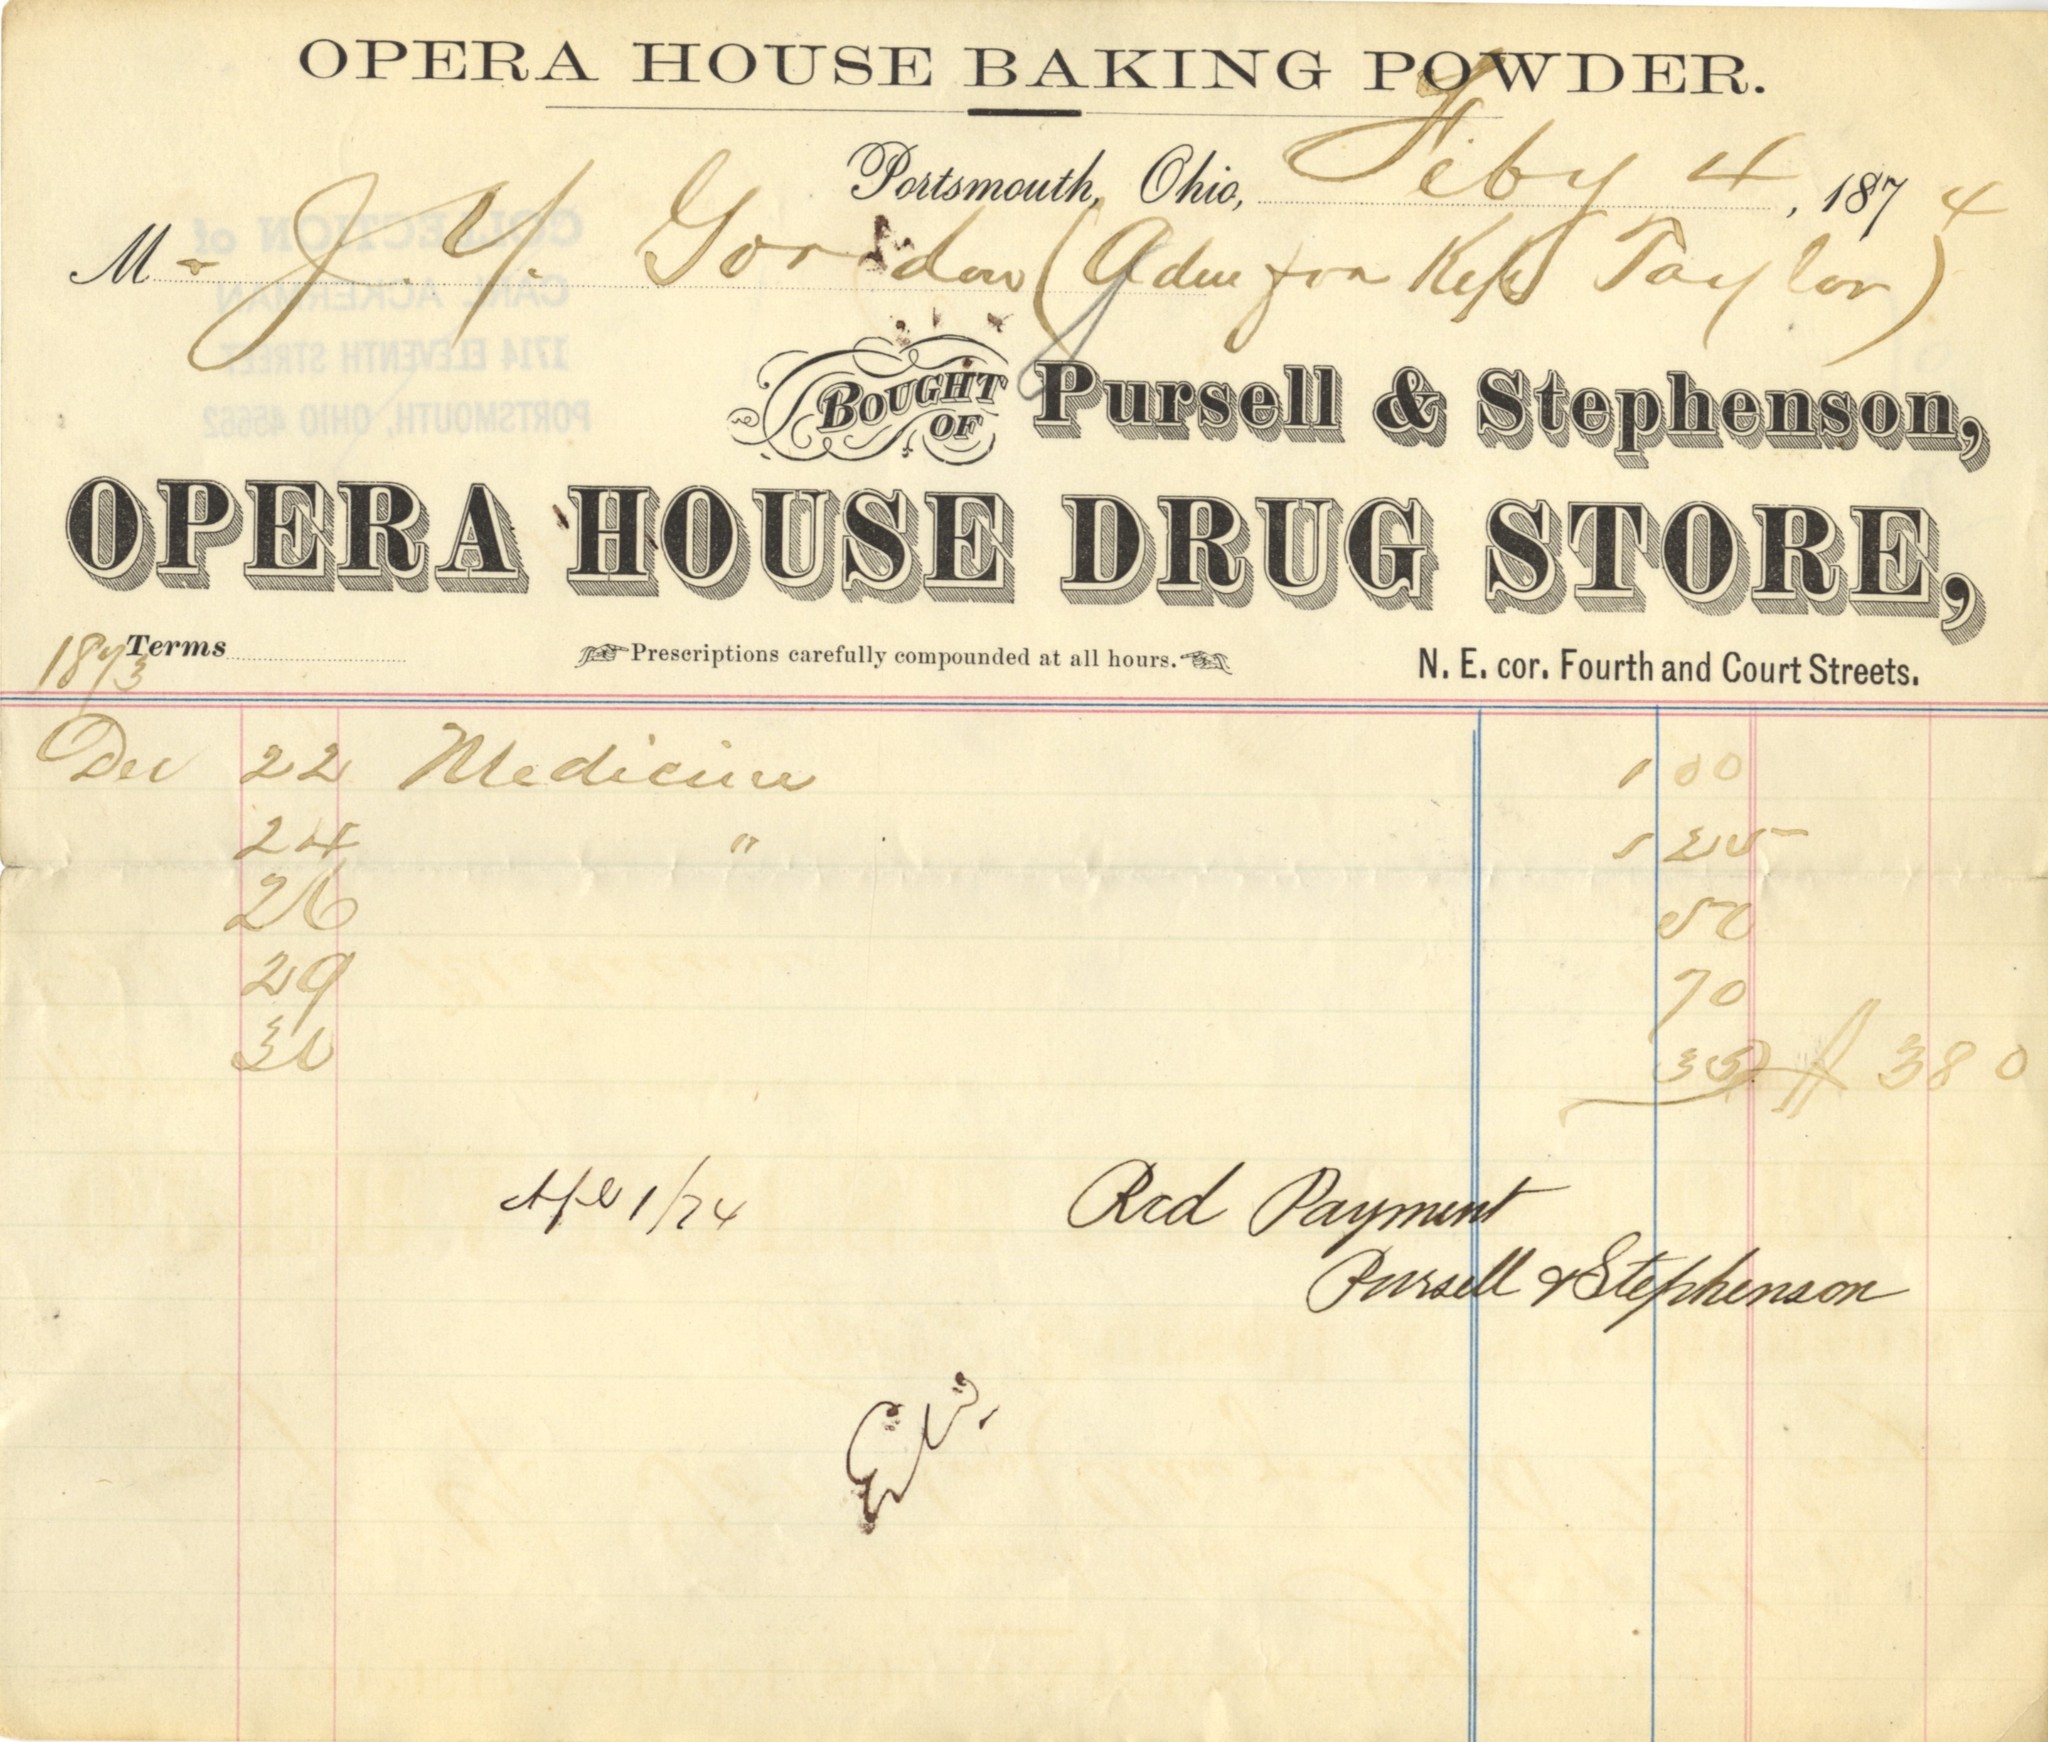 OPERA HOUSE BAKING POWDER.
Portsmouth, Ohio, Feby 4, 1874
Mr J. Y. Gordon (Adm for Taylor)
BOUGHT OF Pursell & Stephenson,
OPERA HOUSE DRUG STORE,
1873 Terms Prescriptions carefully compounded at all hours. N. E. cor. Fourth and Court Streets.
Dec 22 Medicine 1 00
24 " 1 25
26 50
29 70
30 35 $ 3 80
Apl 1/74 Rcd Payment
Pursell & Stephenson
COLLECTION of
CARL ACKERMAN
1714 ELEVENTH STREET
PORTSMOUTH, OHIO 45662